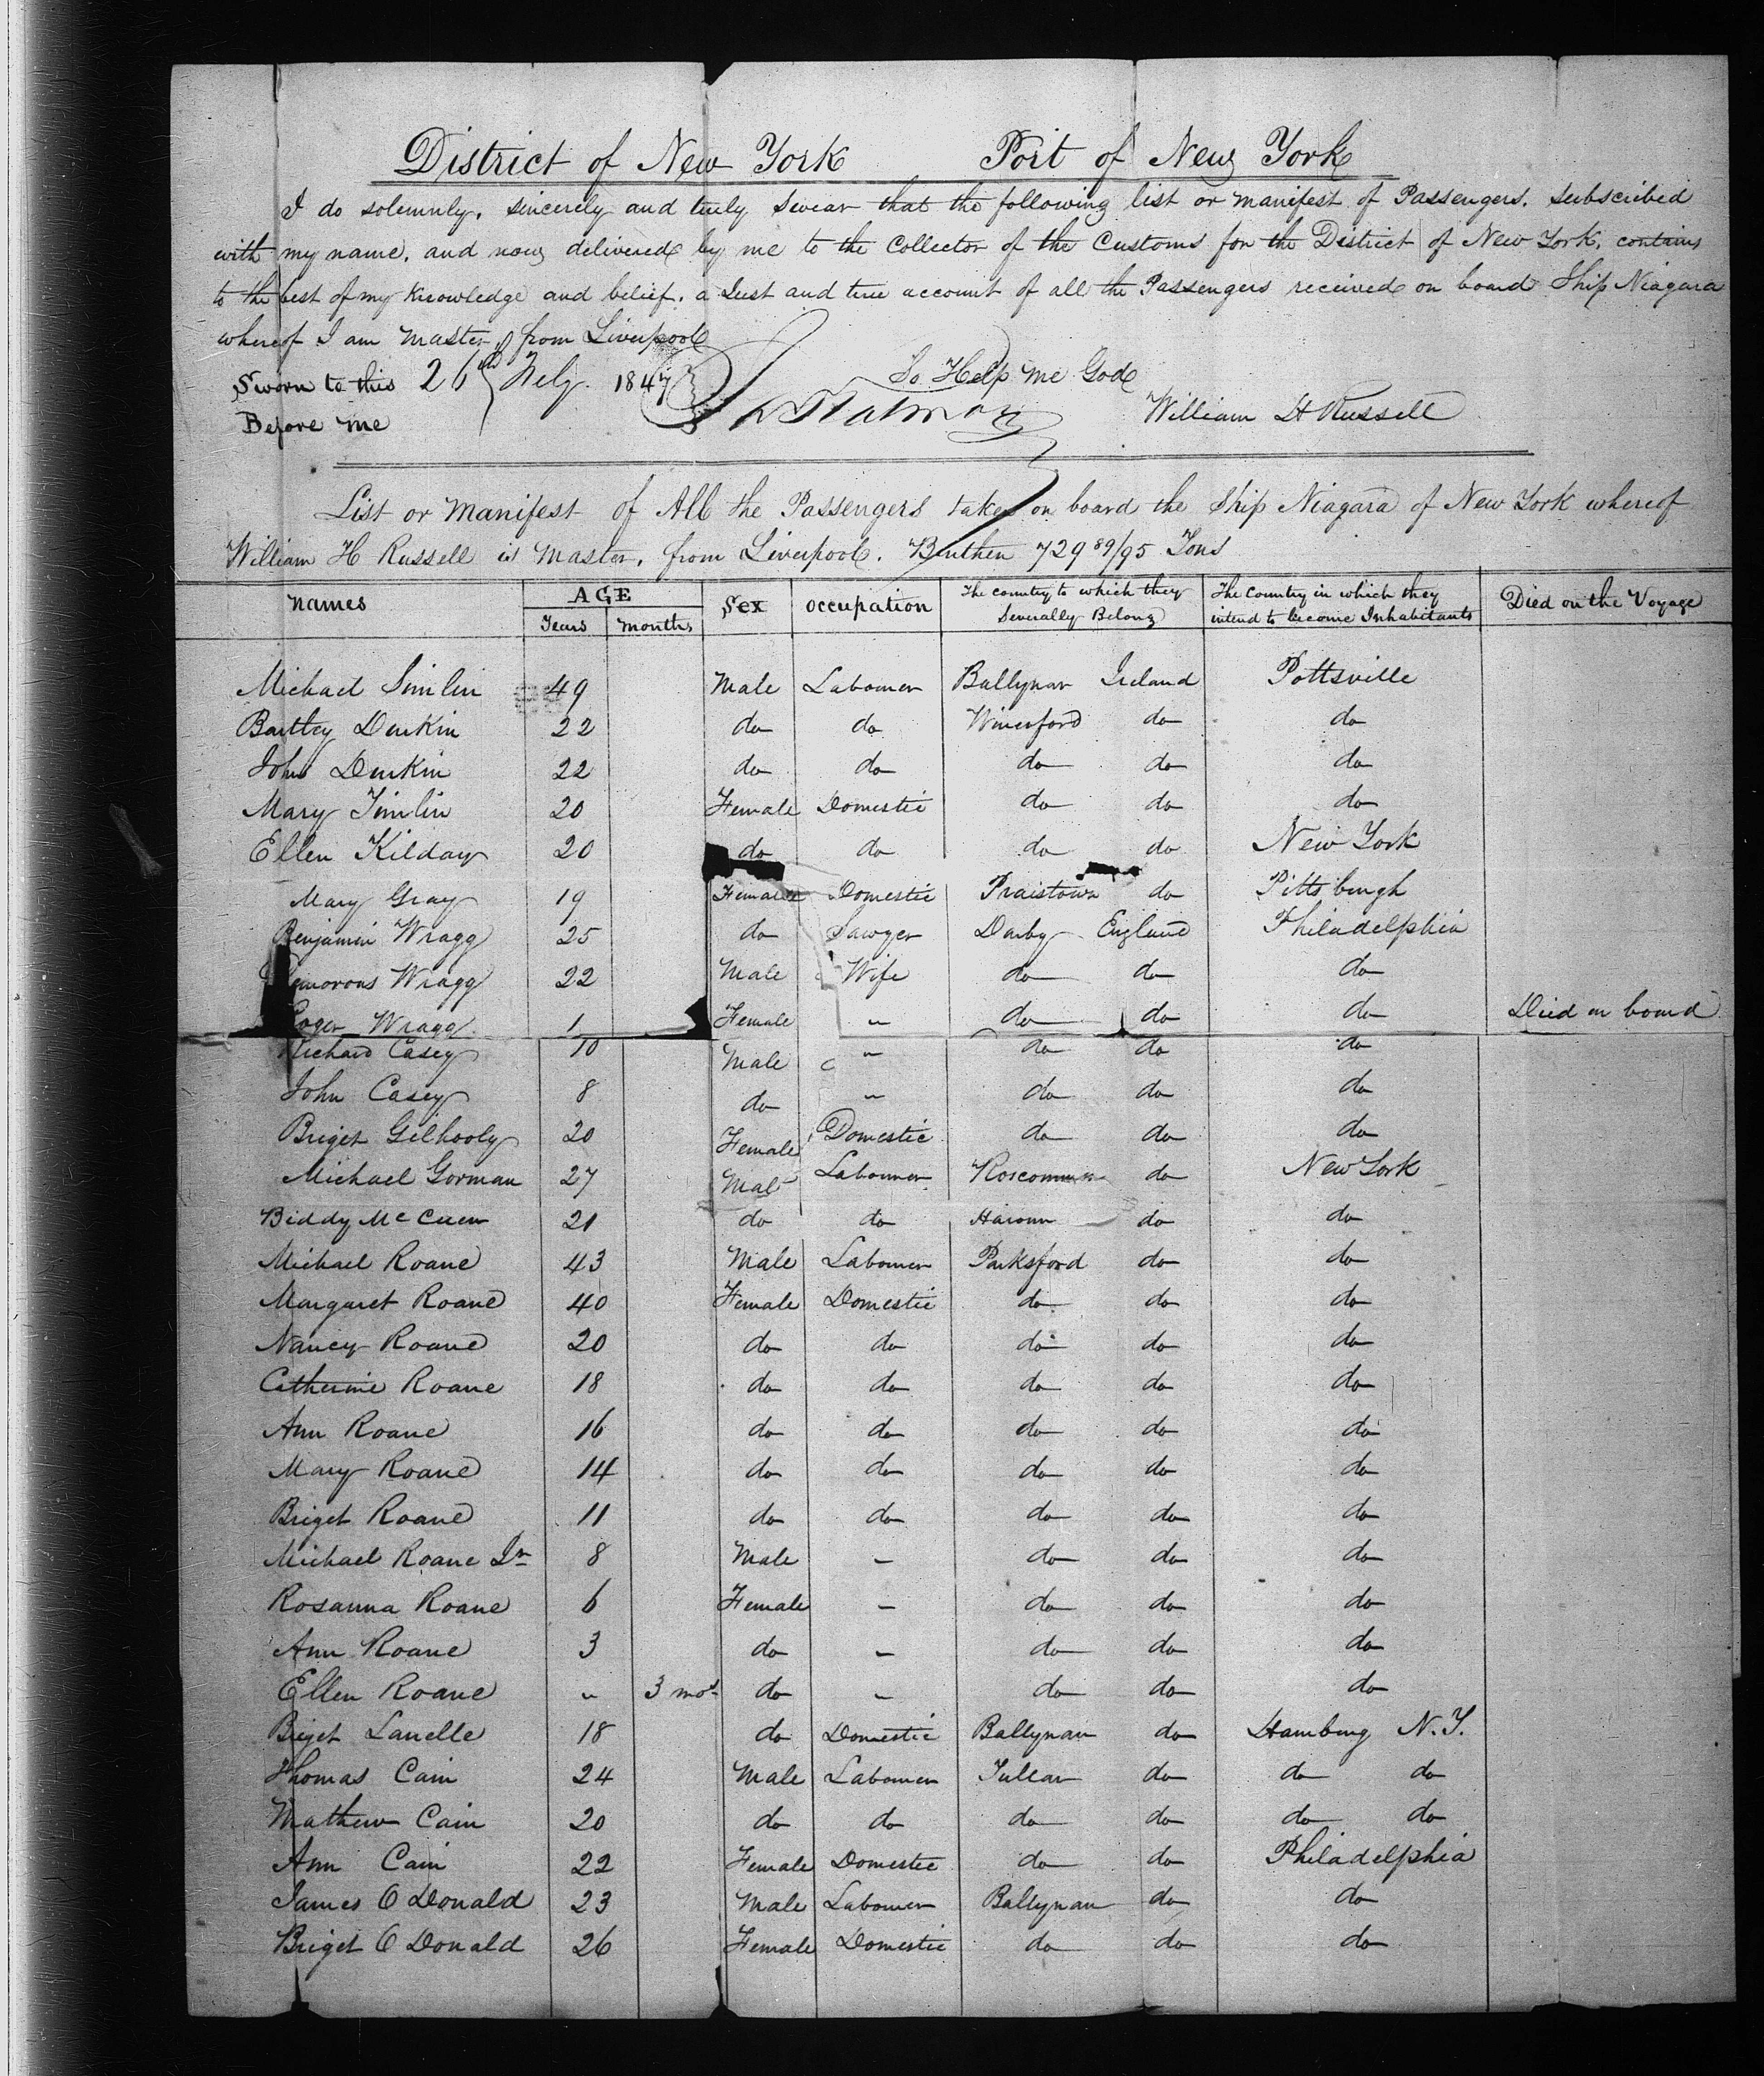 District of New York Port of New York
I do solemnly, sincerely and truly Swear that the following list or manifest of Passengers, subscribed
with my name, and now delivered by me to the Collector of the Customs for the District of New York, contains
to the best of my knowledge and belief, a Just and true account of all the Passengers received on board Ship Niagara
whereof I am master, from Liverpool
Sworn to this 26th Feby. 1847 So Help me God
Before me William H Russell
List or manifest of All the Passengers taken on board the Ship Niagara of New York whereof
William H Russell is Master, from Liverpool. Burthen 729 89/95 Tons
names AGE Years months Sex occupation The country to which they Severally Belong The Country in which they intend to become Inhabitants Died on the Voyage
Michael Timlin 49 Male Labourer Ballynar Ireland Pottsville
Barttey Durkin 22 do do Winesford do do
John Durkin 22 do do do do do
Mary Timlin 20 Female Domestic do do do
Ellen Kilday 20 do do do do New York
Mary Gray 19 Female Domestic Praistown do Pittsburgh
Benjamin Wragg 25 do Sawyer Darby England Philadelphia
Wragg 22 Male Wife do do do
Wragg 1 Female " do do do Died on board
Richard Casey 10 Male " do do do
John Casey 8 do " do do do
Briget Gilhooly 20 Female Domestic do do do
Michael Gorman 27 Male Labourer Roscommon do New York
Biddy McCuen 21 do do do do
Michael Roane 43 Male Labourer Parksford do do
Margaret Roane 40 Female Domestic do do do
Nancy Roane 20 do do do do do
Catherine Roane 18 do do do do do
Ann Roane 16 do do do do do
Mary Roane 14 do do do do do
Briget Roane 11 do do do do do
Michael Roane Jr 8 Male – do do do
Rosanna Roane 6 Female – do do do
Ann Roane 3 do – do do do
Ellen Roane " 3 mos do – do do do
Briget Lavelle 18 do Domestic Ballynau do Hamburg N.Y.
Thomas Cain 24 Male Labourer Tullar do do do
Mathew Cain 20 do do do do do do
Ann Cain 22 Female Domestic do do Philadelphia
James O Donald 23 Male Labourer Ballynau do do
Briget O Donald 26 Female Domestic do do do